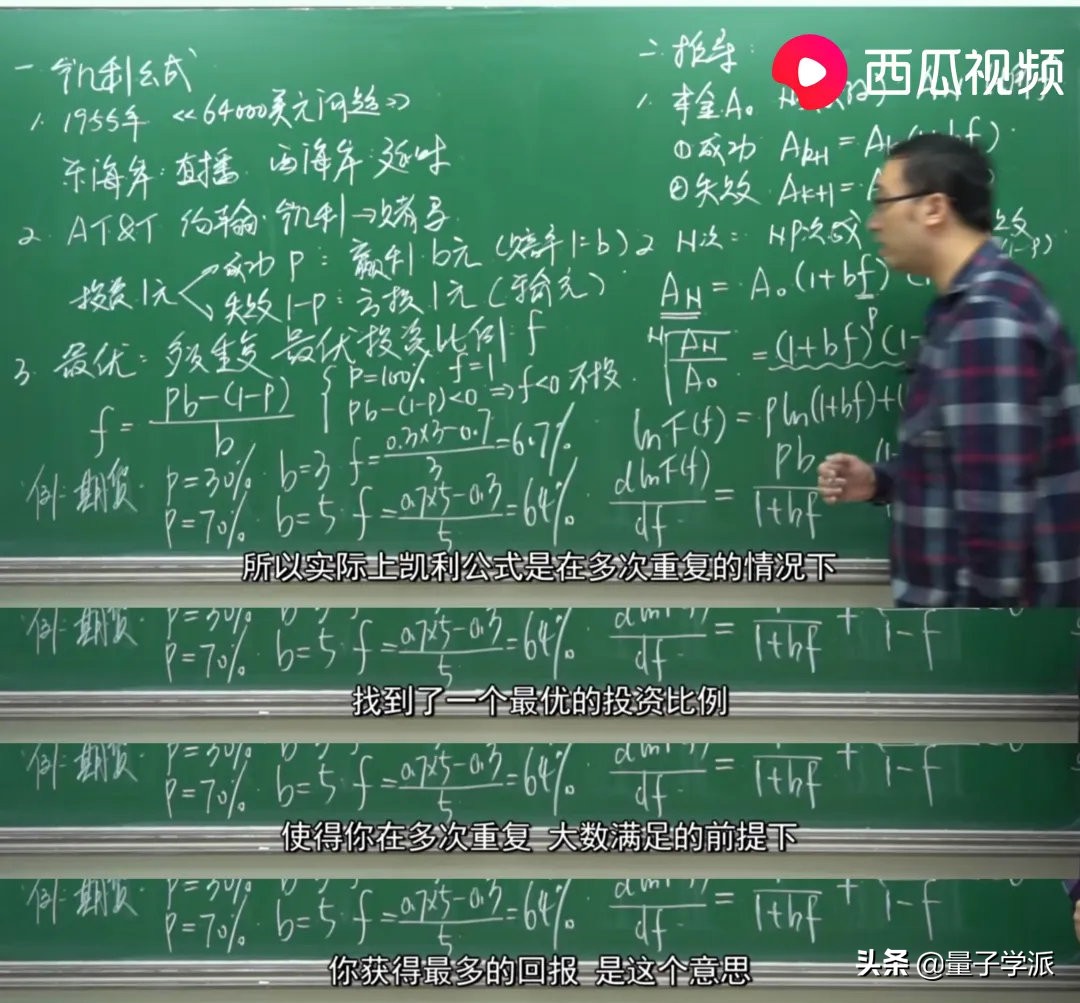 西瓜视频
一 凯利公式
1. 1955年 《64000美元问题》
东海岸:直播 西海岸:延时
2. AT&T 约翰·凯利→赌马
投资1元
成功 P: 赢利b元 (赔率1=b)
失败 1-P: 亏损1元 (输光)
3. 最优: 多次重复 最优投资比例 f
f = (Pb-(1-P))/b
P=100% f=1
Pb-(1-P)<0 ⇒ f<0 不投
例: 期货 P=30% b=3 f=(0.3×3-0.7)/3=6.7%
P=70% b=5 f=(0.7×5-0.3)/5=64%
二 推导:
1. 本金A₀
①成功 A_{k+1} = bf)
②失败 A_{k+1} =
2 N次: NP次成 败
(1-P)
A_N = A₀(1+bf)
N√(A_N/A₀) = (1+bf)^P (1-
lnF(f) = Pln(1+bf)+(
dlnF(f)/df = Pb/(1+bf)
所以实际上凯利公式是在多次重复的情况下
P=30% b=3
例: 期货 P=70% b=5 f=(0.7×5-0.3)/5=64% dlnF(f)/df = /(1+bf) + /(1-f)
找到了一个最优的投资比例
P=30% b=3
例: 期货 P=70% b=5 f=(0.7×5-0.3)/5=64% dlnF(f)/df = /(1+bf) + /(1-f)
使得你在多次重复 大数满足的前提下
P=30% b=3
例: 期货 P=70% b=5 f=(0.7×5-0.3)/5=64% dlnF(f)/df = /(1+bf) + /(1-f)
你获得最多的回报 是这个意思
头条 @量子学派